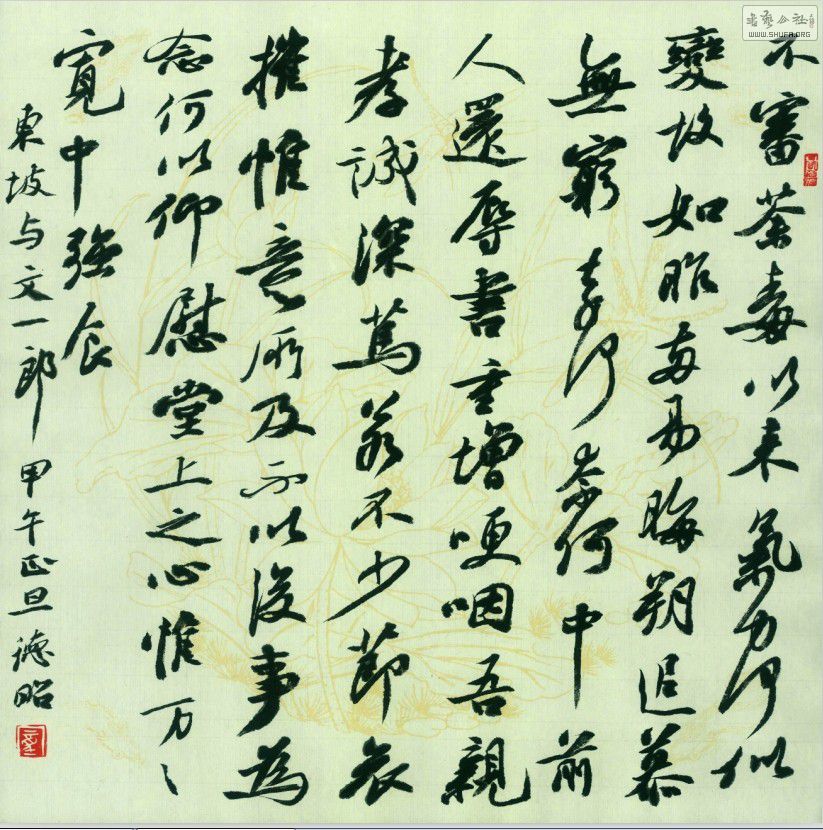 書藝公社
WWW.SHUFA.ORG
不審荼毒以来氣力何似
變故如昨两易晦朔追慕
無窮奈何奈何中前
人還辱書重增哽咽吾親
孝誠深篤若不少節哀
摧惟意所及不以後事為
念何以仰慰堂上之心惟万〻
寬中強食
東坡与文一郎 甲午正旦 德昭